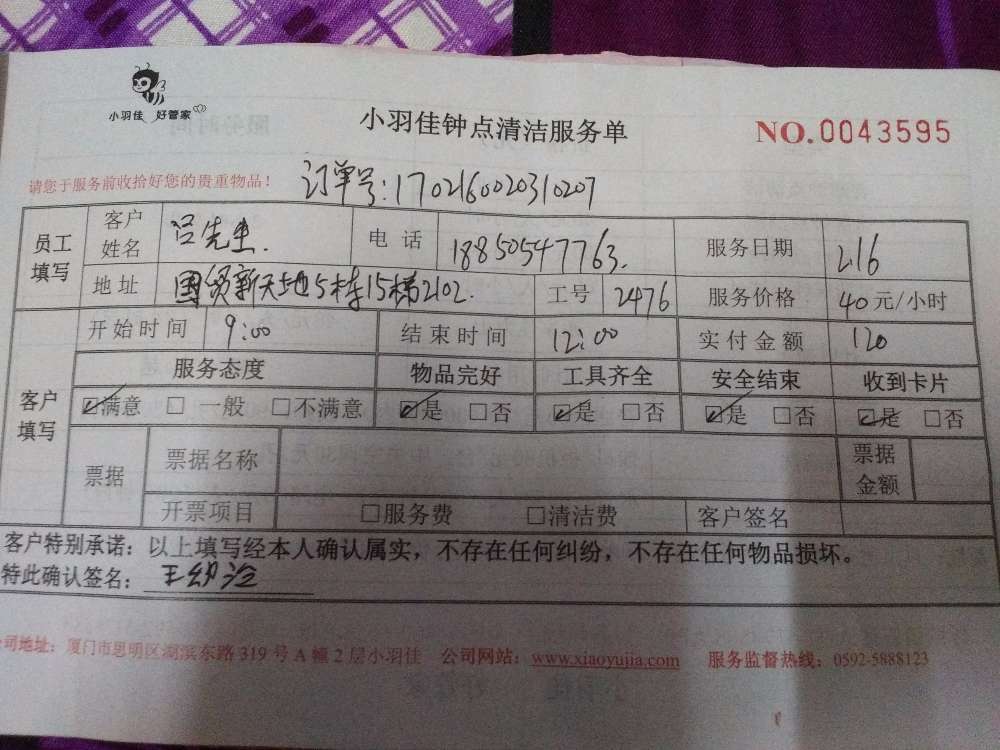 小羽佳 好管家
小羽佳钟点清洁服务单
NO.0043595
请您于服务前收拾好您的贵重物品！
订单号:17021600203 10207
员工填写 客户姓名 吕先生. 电话 18850547763. 服务日期 2.16
地址 国贸新天地5栋15梯2102. 工号 2476 服务价格 40元/小时
客户填写 开始时间 9:00 结束时间 12:00 实付金额 120
服务态度 物品完好 工具齐全 安全结束 收到卡片
☑满意 □一般 □不满意 ☑是 □否 ☑是 □否 ☑是 □否 ☑是 □否
票据 票据名称 票据金额
开票项目 □服务费 □清洁费 客户签名
客户特别承诺：以上填写经本人确认属实，不存在任何纠纷，不存在任何物品损坏。
特此确认签名：王幼
公司地址：厦门市思明区湖滨东路319号A幢2层小羽佳 公司网站：www.xiaoyujia.com 服务监督热线：0592-5888123